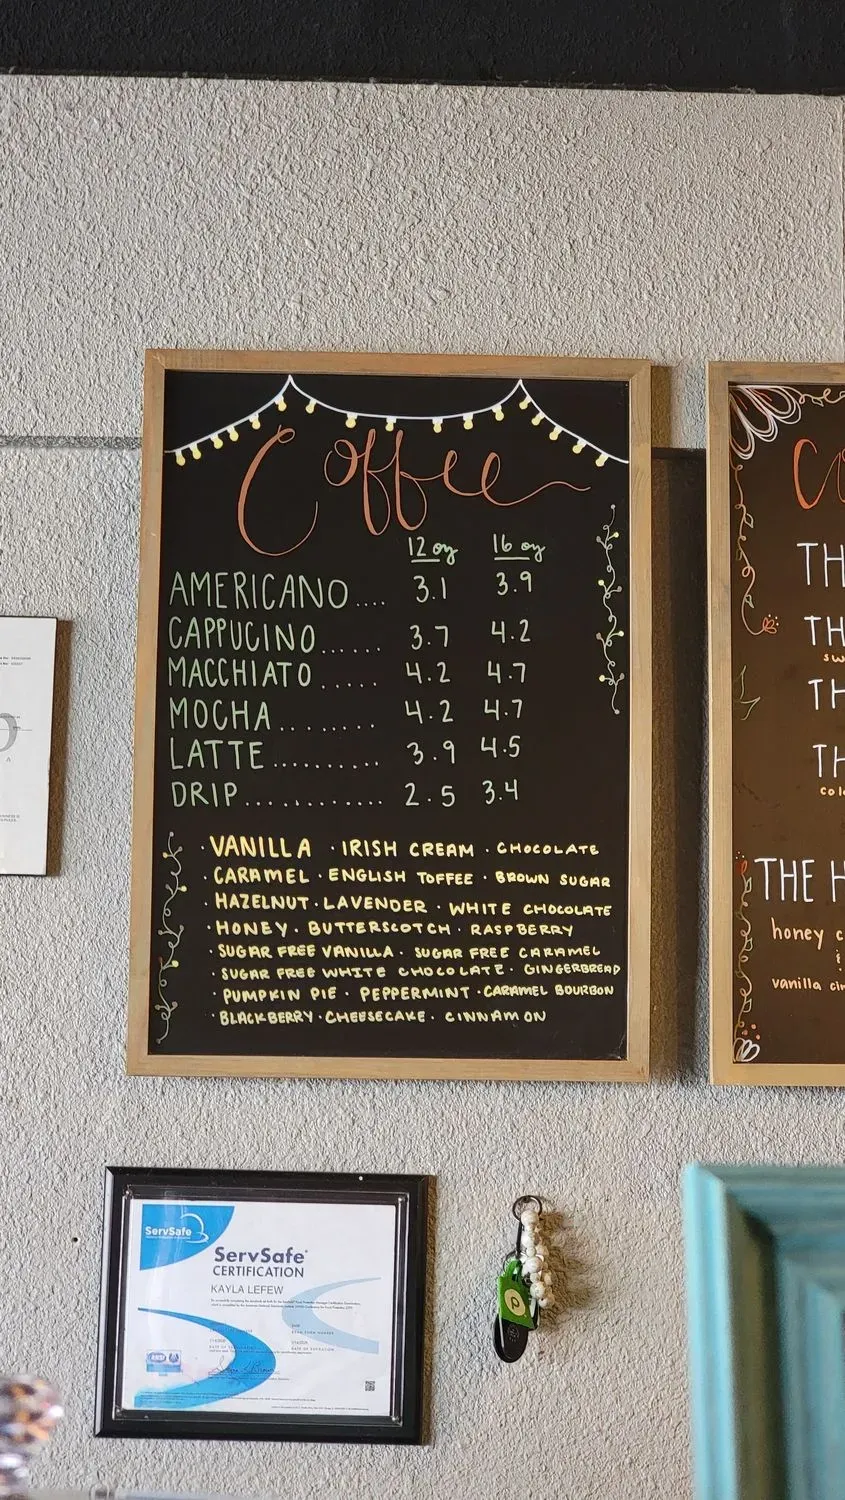 Coffee
12 oz 16 oz
AMERICANO.... 3.1 3.9
CAPPUCINO...... 3.7 4.2
MACCHIATO ..... 4.2 4.7
MOCHA......... 4.2 4.7
LATTE.......... 3.9 4.5
DRIP............. 2.5 3.4
· VANILLA · IRISH CREAM · CHOCOLATE
· CARAMEL · ENGLISH TOFFEE · BROWN SUGAR
· HAZELNUT · LAVENDER · WHITE CHOCOLATE
· HONEY · BUTTERSCOTCH · RASPBERRY
· SUGAR FREE VANILLA · SUGAR FREE CARAMEL
· SUGAR FREE WHITE CHOCOLATE · GINGERBREAD
· PUMPKIN PIE · PEPPERMINT · CARAMEL BOURBON
· BLACKBERRY · CHEESECAKE · CINNAMON
TH
TH
TH
TH
THE H
honey c
vanilla cin
ServSafe
ServSafe®
CERTIFICATION
KAYLA LEFEW